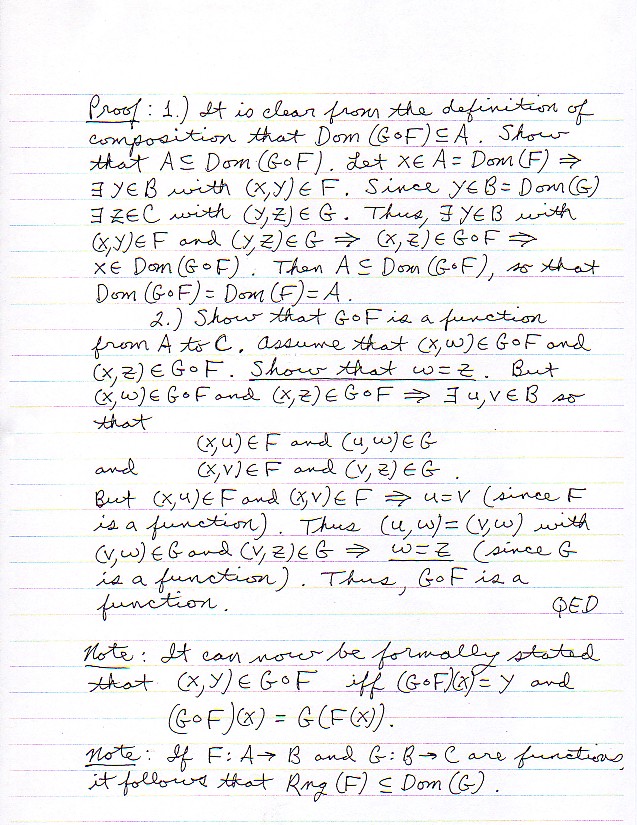 Proof: 1.) It is clear from the definition of
composition that Dom (G∘F) ⊆ A. Show
that A ⊆ Dom (G∘F). Let x ∈ A = Dom (F) ⇒
∃ y ∈ B with (x,y) ∈ F. Since y ∈ B = Dom (G)
∃ z ∈ C with (y,z) ∈ G. Thus, ∃ y ∈ B with
(x,y) ∈ F and (y,z) ∈ G ⇒ (x,z) ∈ G∘F ⇒
x ∈ Dom (G∘F). Then A ⊆ Dom (G∘F), so that
Dom (G∘F) = Dom (F) = A.
2.) Show that G∘F is a function
from A to C. Assume that (x,w) ∈ G∘F and
(x,z) ∈ G∘F. Show that w = z. But
(x,w) ∈ G∘F and (x,z) ∈ G∘F ⇒ ∃ u,v ∈ B so
that
(x,u) ∈ F and (u,w) ∈ G
and (x,v) ∈ F and (v,z) ∈ G.
But (x,u) ∈ F and (x,v) ∈ F ⇒ u = v (since F
is a function). Thus (u,w) = (v,w) with
(v,w) ∈ G and (v,z) ∈ G ⇒ w = z (since G
is a function). Thus, G∘F is a
function. QED
Note: It can now be formally stated
that (x,y) ∈ G∘F iff (G∘F)(x) = y and
(G∘F)(x) = G(F(x)).
Note: If F: A → B and G: B → C are functions,
it follows that Rng (F) ⊆ Dom (G).